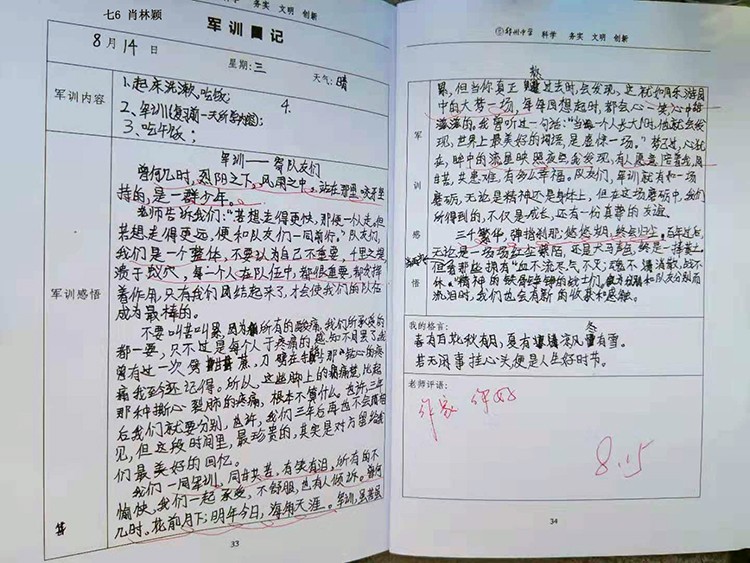 七6 肖林颖
科学 务实 文明 创新
军训周记
8月14日 星期:三 天气:晴
军训内容
1、起床洗漱,吃饭;
4、
2、军训(复习前一天所学内容);
3、吃午饭;
军训感悟
军训——寄队友们
曾何几时,烈阳之下,风雨之中,站在那里咬牙坚
持的,是一群少年。
老师告诉我们:“若想走得更快,那便一人走。但
若想走得更远,便和队友们一同前行。”队友们,
我们是一个整体,不要以为自己不重要,千里之堤
溃于蚁穴,每一个人在队伍中,都很重要,都发挥
着作用,只有我们团结起来了,才会使我们的队伍
成为最棒的。
不要叫苦叫累,因为所有的酸痛,我们所承受的
都一要,只不过是每个人于疼痛的感知不同罢了。我
曾有过一次劈甘蔗,刀劈在那钻心的疼
痛我至今还记得。所以,这些脚上的痛,比起
那种撕心裂肺的疼痛,根本不算什么。也许三年
后我们就要分别,也许,我们三年后再也不会
见,但这段时间里,最珍贵的,其实是对方留给我
们最美好的回忆。
我们一同军训,同甘共苦,有笑有泪,所有的不
愉快,我们一起承受,不舒服,也有人倾诉。曾何
几时,花前月下;明年今日,海角天涯。军训,虽苦虽
33
郑州中学 科学 务实 文明 创新
军训感悟
累,但当你真正熬过去时,会发现,这就如同乐游园
中的大梦一场,每每回想起时,都会心一笑,心中
滋滋的。我曾听过一句话:“当一个人长大时,他就会发
现,世界上最美好的词语,是虚惊一场。”梦了过,心就
在,眸中的流星映照夜空我发现,有人愿意陪着我,同
甘苦,共患难,有多么幸福。队友们,军训就有如一场
磨砺,无论是精神还是身体上,但在这场磨砺中,我们
所得到的,不仅是成长,还有一份真挚的友谊。
三千繁华,弹指刹那,悠悠过,终会归尘。百年过后,
无论是一场场红尘,还是犬马声色,终是一抔黄土。
但看那些拥有“血不流天气不灭;魂不消散,战不
休。”精神的铮铮的战士们,为和队友分别而
流泪时,我们也会有新的收获和感触。
我的格言:
春有百花秋有月,夏有凉风冬有雪。
若无闲事挂心头,便是人生好时节。
老师评语:
作家
8.15
34